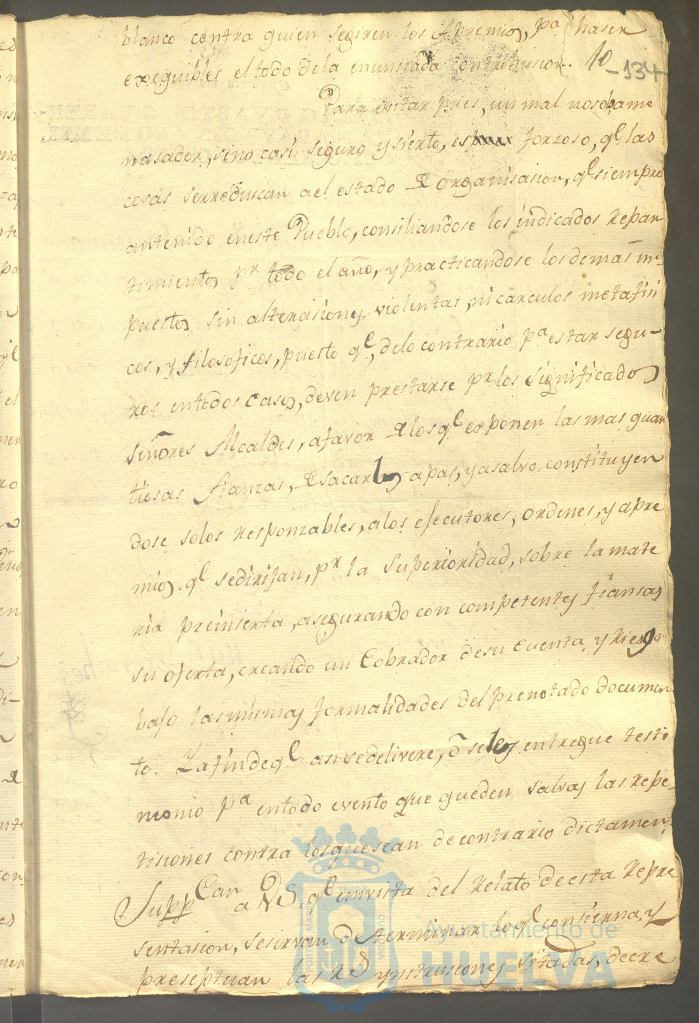 blanco contra quien segiren los Apremios, pa. haser
exequibles el todo dela enunsiada contribusion.
10
-134-
Para evitar pues, un mal no solo ame
nasador, sino casi seguro y sierto, es forzoso, qe. las
cosas se rreduscan a el estado de organisasion, qe. siempre
an tenido en este Pueblo, consiliandose los indicados Repar
timientos pr. todo el año, y practicandose los demas im-
puestos sin alterasiones violentas, ni carculos metafisi
cos, y filosoficos, puesto qe., de lo contrario pa. estar segu-
ros en todos casos, deven prestarse pr. los significados
señores Alcaldes, a favor de los qe. exponen las mas quan
tiosas fianzas, de sacarlos a pas, y a salvo, constituyen
dose solos responzables, a los efecutores, ordenes, y apre
mios qe. se dirijan, pr. la Superioridad, sobre la mate
ria preinserta, asegurando con competentes fiansas
su oferta, creando un Cobrador de su Cuenta, y Riesgo
bajo las mismas formalidades del prenotado documen
to. Y a fin de qe. asi se delivere, o se les entregue testi
monio pa. en todo evento que queden salvas las Repe
tisiones contra los que sean de contrario dictamen,
Suppcan a VS. qe. en vista del Relato de esta Repre
sentasion, se sirvan determinar lo qe. contierna, y
preseptuan las Rs. Ynstrusiones sitadas, decre
Ayuntamiento de
HUELVA